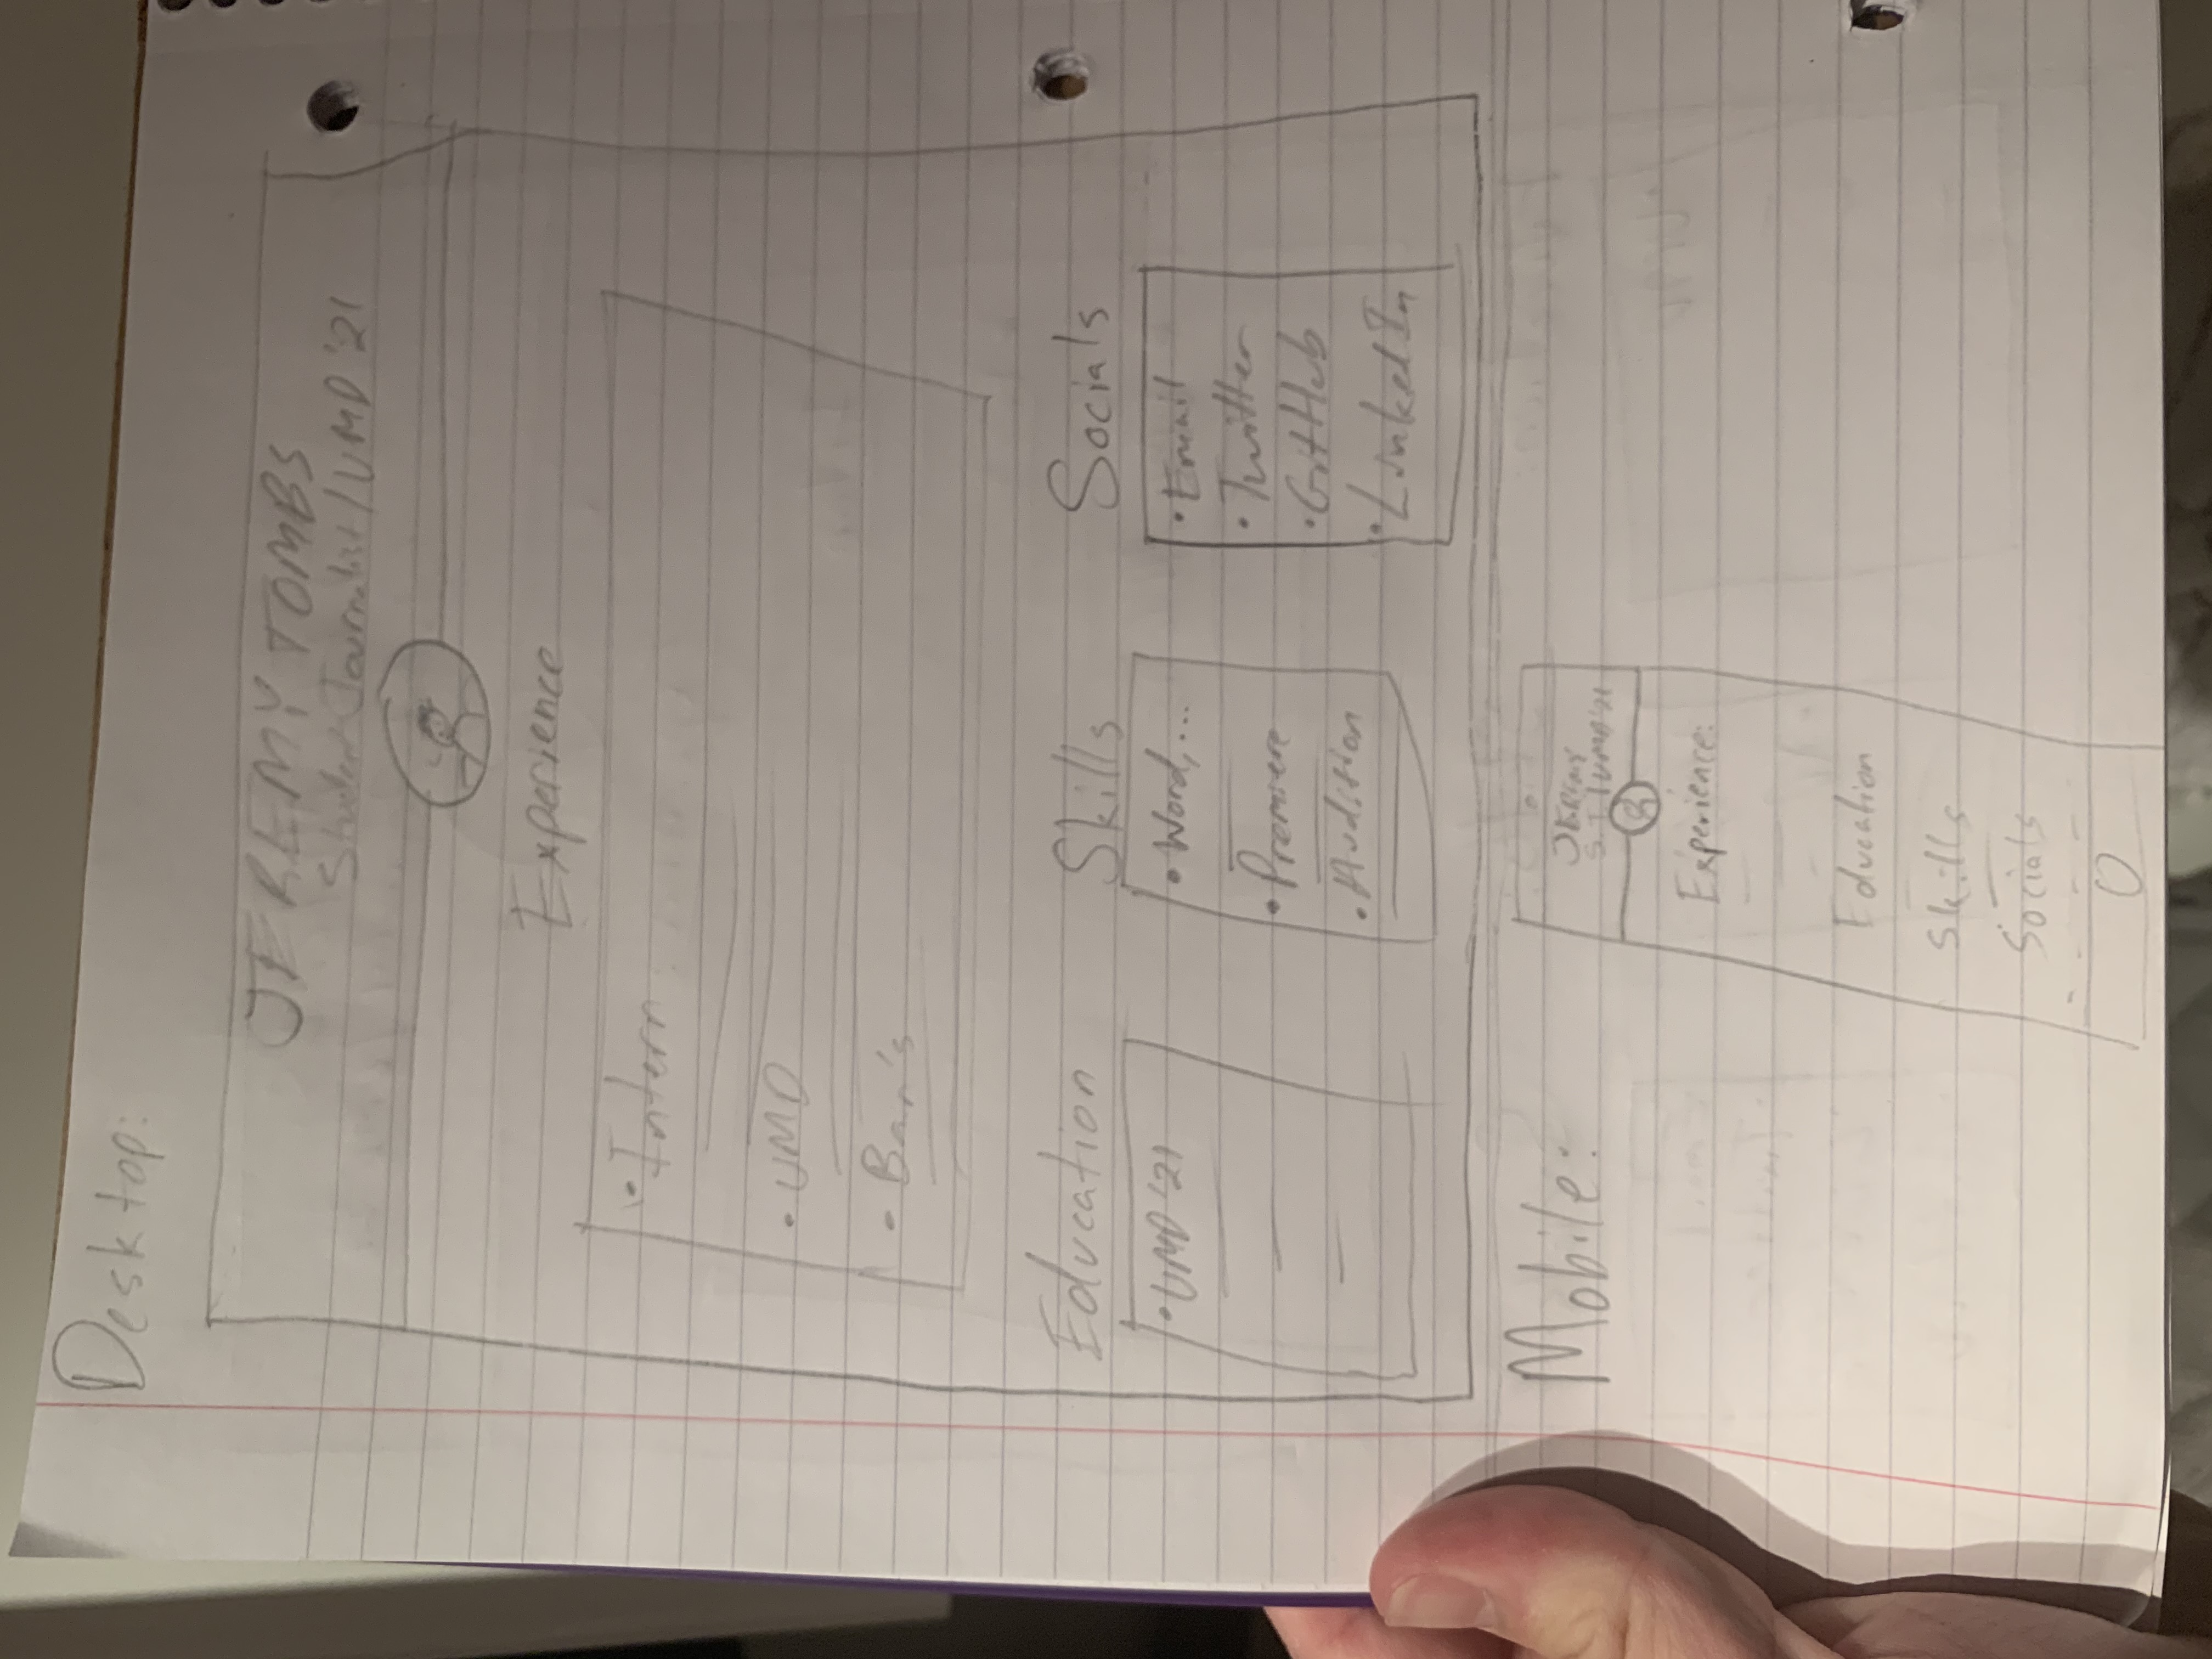 Desktop:
JEREMY TOMBS
Student Journalist/UMD '21
Experience
• Intern
• UMD
• Bar's
Education
• UMD '21
Skills
• Word,...
• Premiere
• Audition
Socials
• Email
• Twitter
• GitHub
• LinkedIn
Mobile:
JEREMY
S.J/UMD'21
Experience:
Education
Skills
Socials